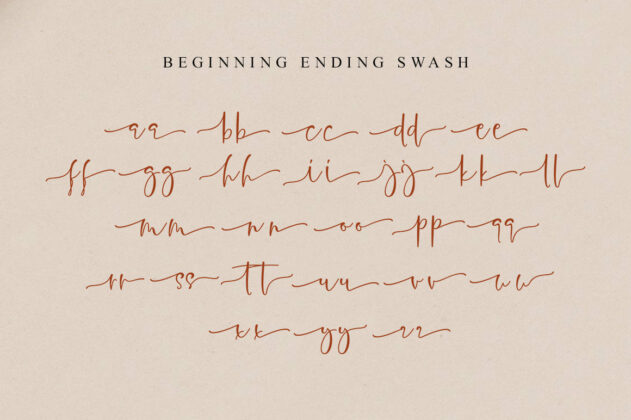 BEGINNING ENDING SWASH
aa bb cc dd ee
ff gg hh ii jj kk ll
mm nn oo pp qq
rr ss tt uu vv ww
xx yy zz